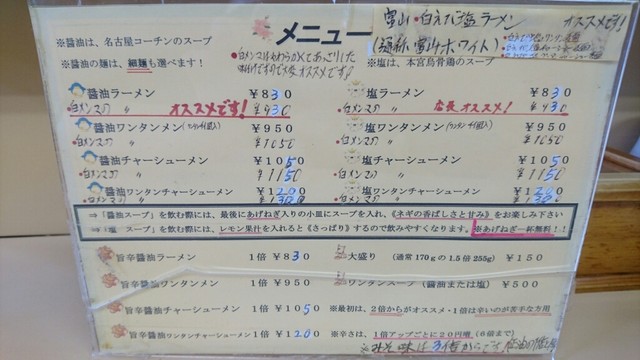 メニュー
富山・白えび塩ラーメン オススメです!
(通称 富山ホワイト)
※醤油は、名古屋コーチンのスープ
※醤油の麺は、細麺も選べます!
・白メンマはやわらかくてあっさりした
オススメです!
※塩は、本宮烏骨鶏のスープ
醤油ラーメン ¥830
・白メンマの 〃 オススメです! ¥930
醤油ワンタンメン(ワンタン4個入) ¥950
・白メンマの 〃 ¥1050
醤油チャーシューメン ¥1050
・白メンマの 〃 ¥1150
醤油ワンタンチャーシューメン ¥1200
・白メンマの 〃
塩ラーメン ¥830
・白メンマの 〃 店長オススメ! ¥930
塩ワンタンメン(ワンタン4個入) ¥950
・白メンマの 〃 ¥1050
塩チャーシューメン ¥1050
・白メンマの 〃 ¥1150
塩ワンタンチャーシューメン ¥1200
・白メンマの 〃
⇒「醤油スープ」を飲む際には、最後にあげねぎ入りの小皿にスープを入れ、《ネギの香ばしさと甘み》をお楽しみ下さい
⇒「塩 スープ」を飲む際には、レモン果汁を入れると《さっぱり》するので飲みやすくなります。※あげねぎ一杯無料!!
旨辛醤油ラーメン 1倍 ¥830
旨辛醤油ワンタンメン 1倍 ¥950
旨辛醤油チャーシューメン 1倍 ¥1050
旨辛醤油ワンタンチャーシューメン 1倍 ¥1200
大盛り (通常170gの1.5倍 255g) ¥150
ワンタンスープ(醤油または塩) ¥500
※最初は、2倍からがオススメ・1倍は辛いのが苦手な方用
※辛さは、1倍アップごとに20円増(6倍まで)